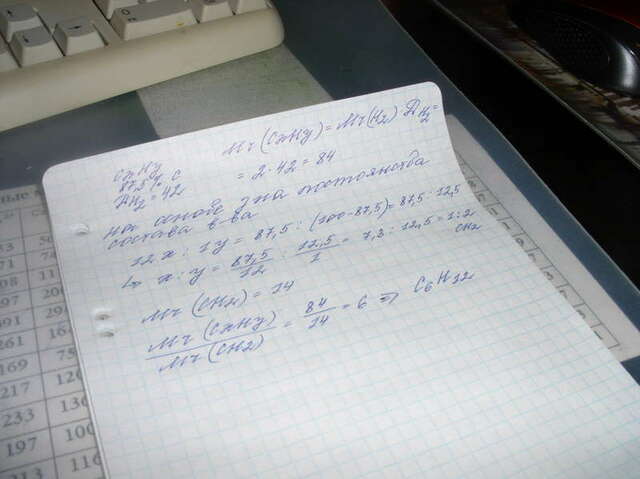 CxHy
87,5% C
DH2 = 42
Mr(CxHy) = Mr(H2) · DH2 =
= 2 · 42 = 84
на основе з-на постоянства
состава в-ва
12x : 1y = 87,5 : (100-87,5) = 87,5 : 12,5
x : y = 87,5/12 : 12,5/1 = 7,3 : 12,5 = 1:2
CH2
Mr(CH2) = 14
Mr(CxHy)/Mr(CH2) = 84/14 = 6 => C6H12
50
74
201
97
291
264
161
169
75
217
126
233
136
197
100
213
116